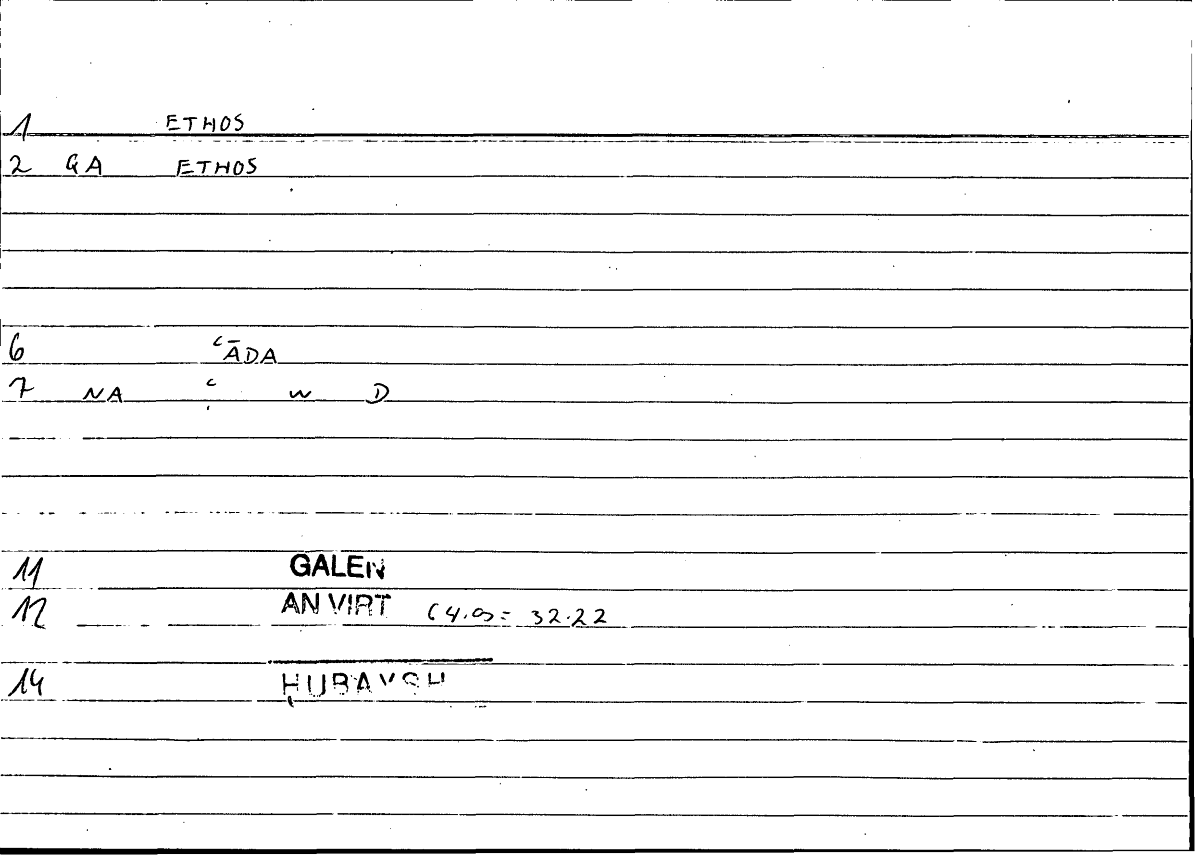 1 ETHOS
2 GA ETHOS
6 ʿĀDA
7 NA ʿ W D
11 GALEN
12 AN VIRT 32.22
14 ḤUBAYSH